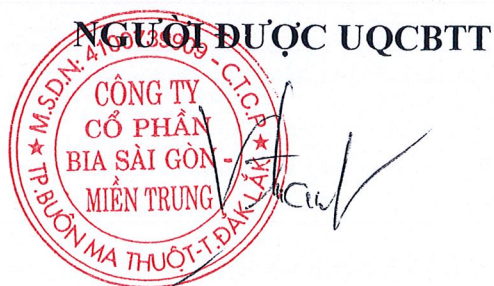 NGƯỜI ĐƯỢC UQCBTT
M.S.D.N: 4100739909 - C.T.C.P
CÔNG TY
CỔ PHẦN
BIA SÀI GÒN -
MIỀN TRUNG
TP.BUÔN MA THUỘT-T.ĐẮK LẮK